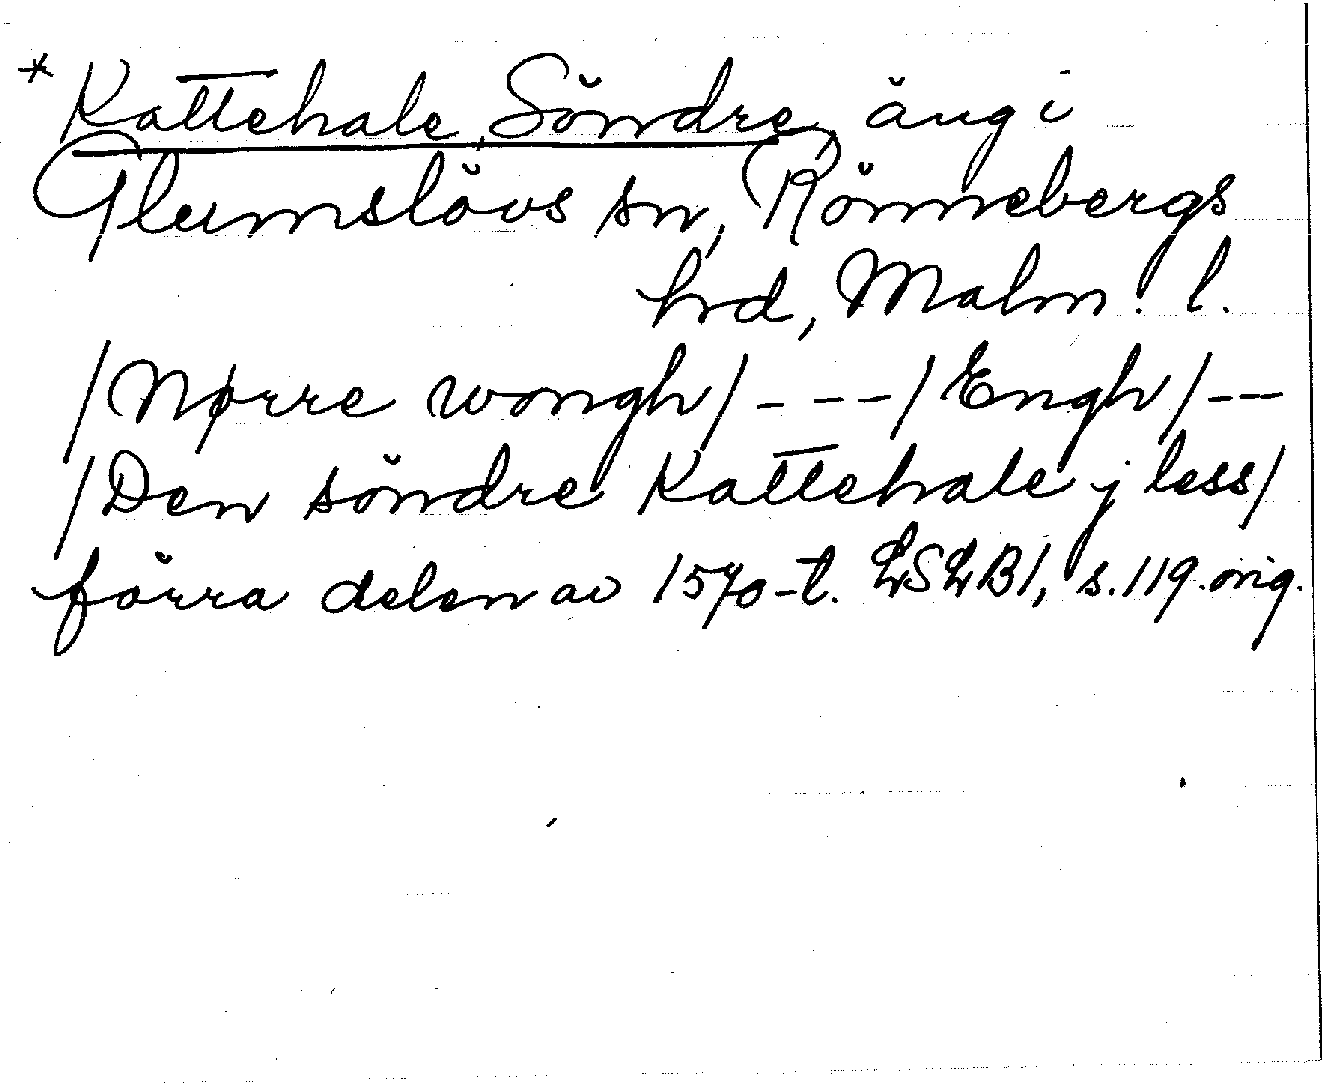 * Kattehale, Söndre, äng i
Glumslövs sn, Rönnebergs
hrd, Malm. l.
/Nørre wongh/ - - - /Engh/ - - -
/Den söndre Kattehale j less/
förra delen av 1570-t. LSLB1, s. 119 orig.